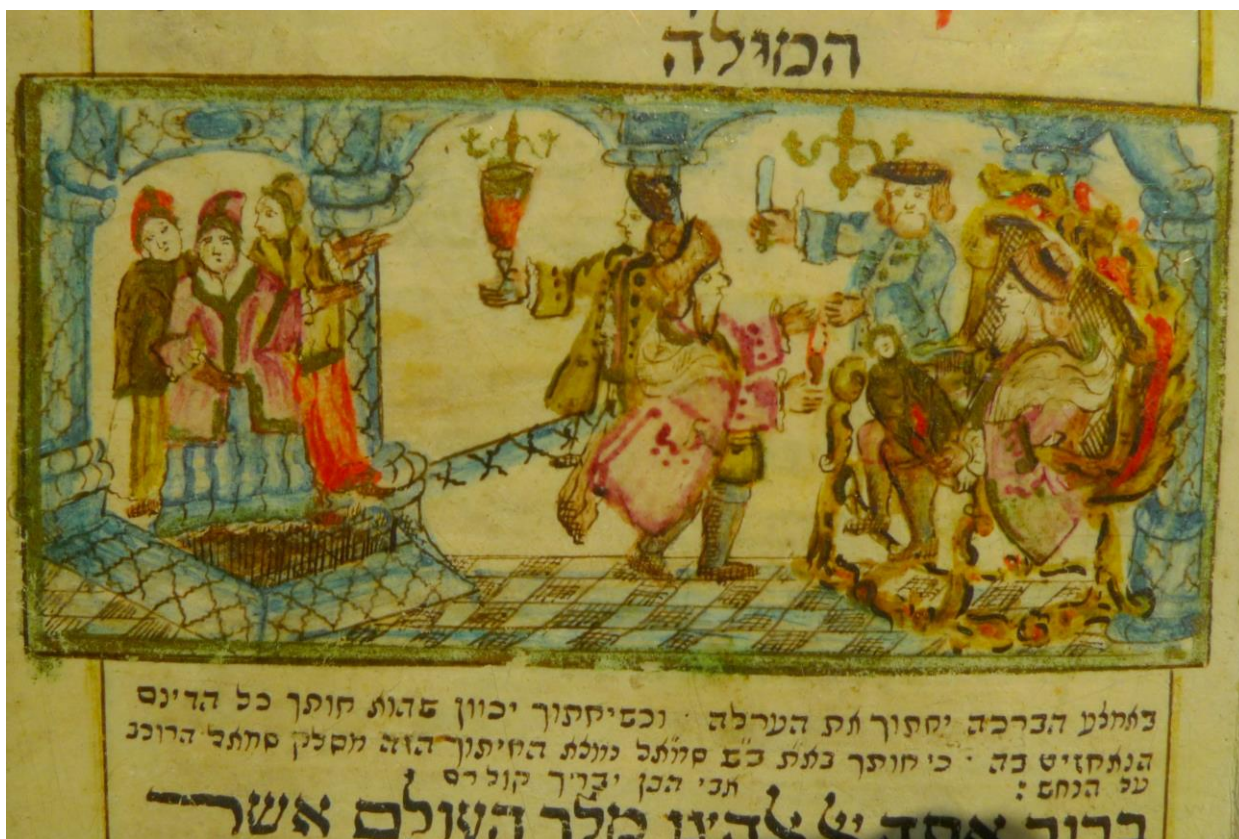 המילה
באמצע הברכה יחתוך את הערלה · וכשיחתוך יכוון שהוא חותך כל הדינם
הנאחזים בה · כי חותך באת ב״ש סמאל נמצא החיתוך הזה מסלק סמאל הרוכב
על הנחש : אבי הבן יברך קול רם
ברוך אתה יי אלהינו מלך העולם אשר